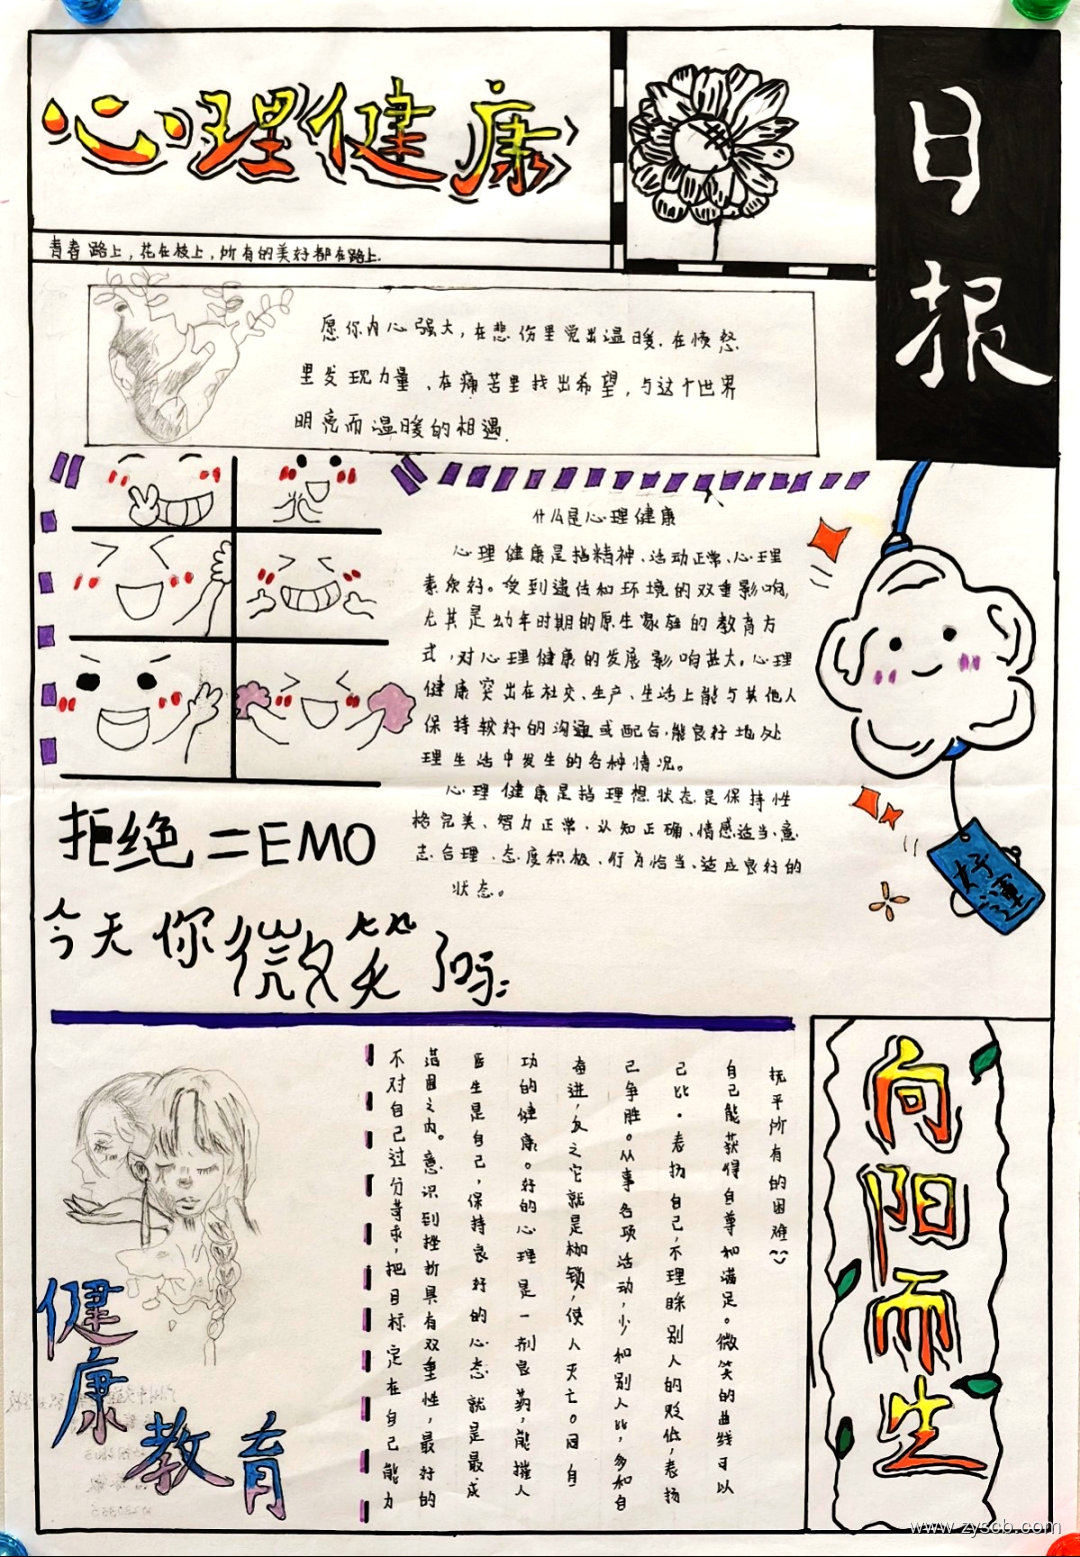 心理健康
日报
青春路上，花在枝上，所有的美好都在路上.
愿你内心强大，在悲伤里觉出温暖.在愤怒
里发现力量、在痛苦里找出希望，与这个世界
明亮而温暖的相遇.
什么是心理健康
心理健康是指精神、活动正常、心理
素质好。受到遗传和环境的双重影响,
尤其是幼年时期的原生家庭的教育方
式,对心理健康的发展影响甚大。心理
健康突出在社交、生产、生活上能与其他人
保持较好的沟通或配合,能良好地处
理生活中发生的各种情况。
心理健康是指理想状态是保持性
格完美、智力正常、认知正确、情感适当、意
志合理、态度积极、行为恰当、适应良好的
状态。
好運
拒绝=EMO
今天你微笑了吗:
抚平所有的困难
自己能获得自尊和满足。微笑的曲线可以
己比.表扬自己,不理睬别人的贬低,表扬
己争胜。从事各项活动,少和别人比,多和自
奋进,反之它就是枷锁,使人灭亡。同自
功的健康。好的心理是一剂良药,能摧人
医生是自己,保持良好的心态就是最成
范围之内。意识到挫折具有双重性,最好的
不对自己过分苛求,把目标定在自己能力
向阳而生
健康教育
www.zyscb.com